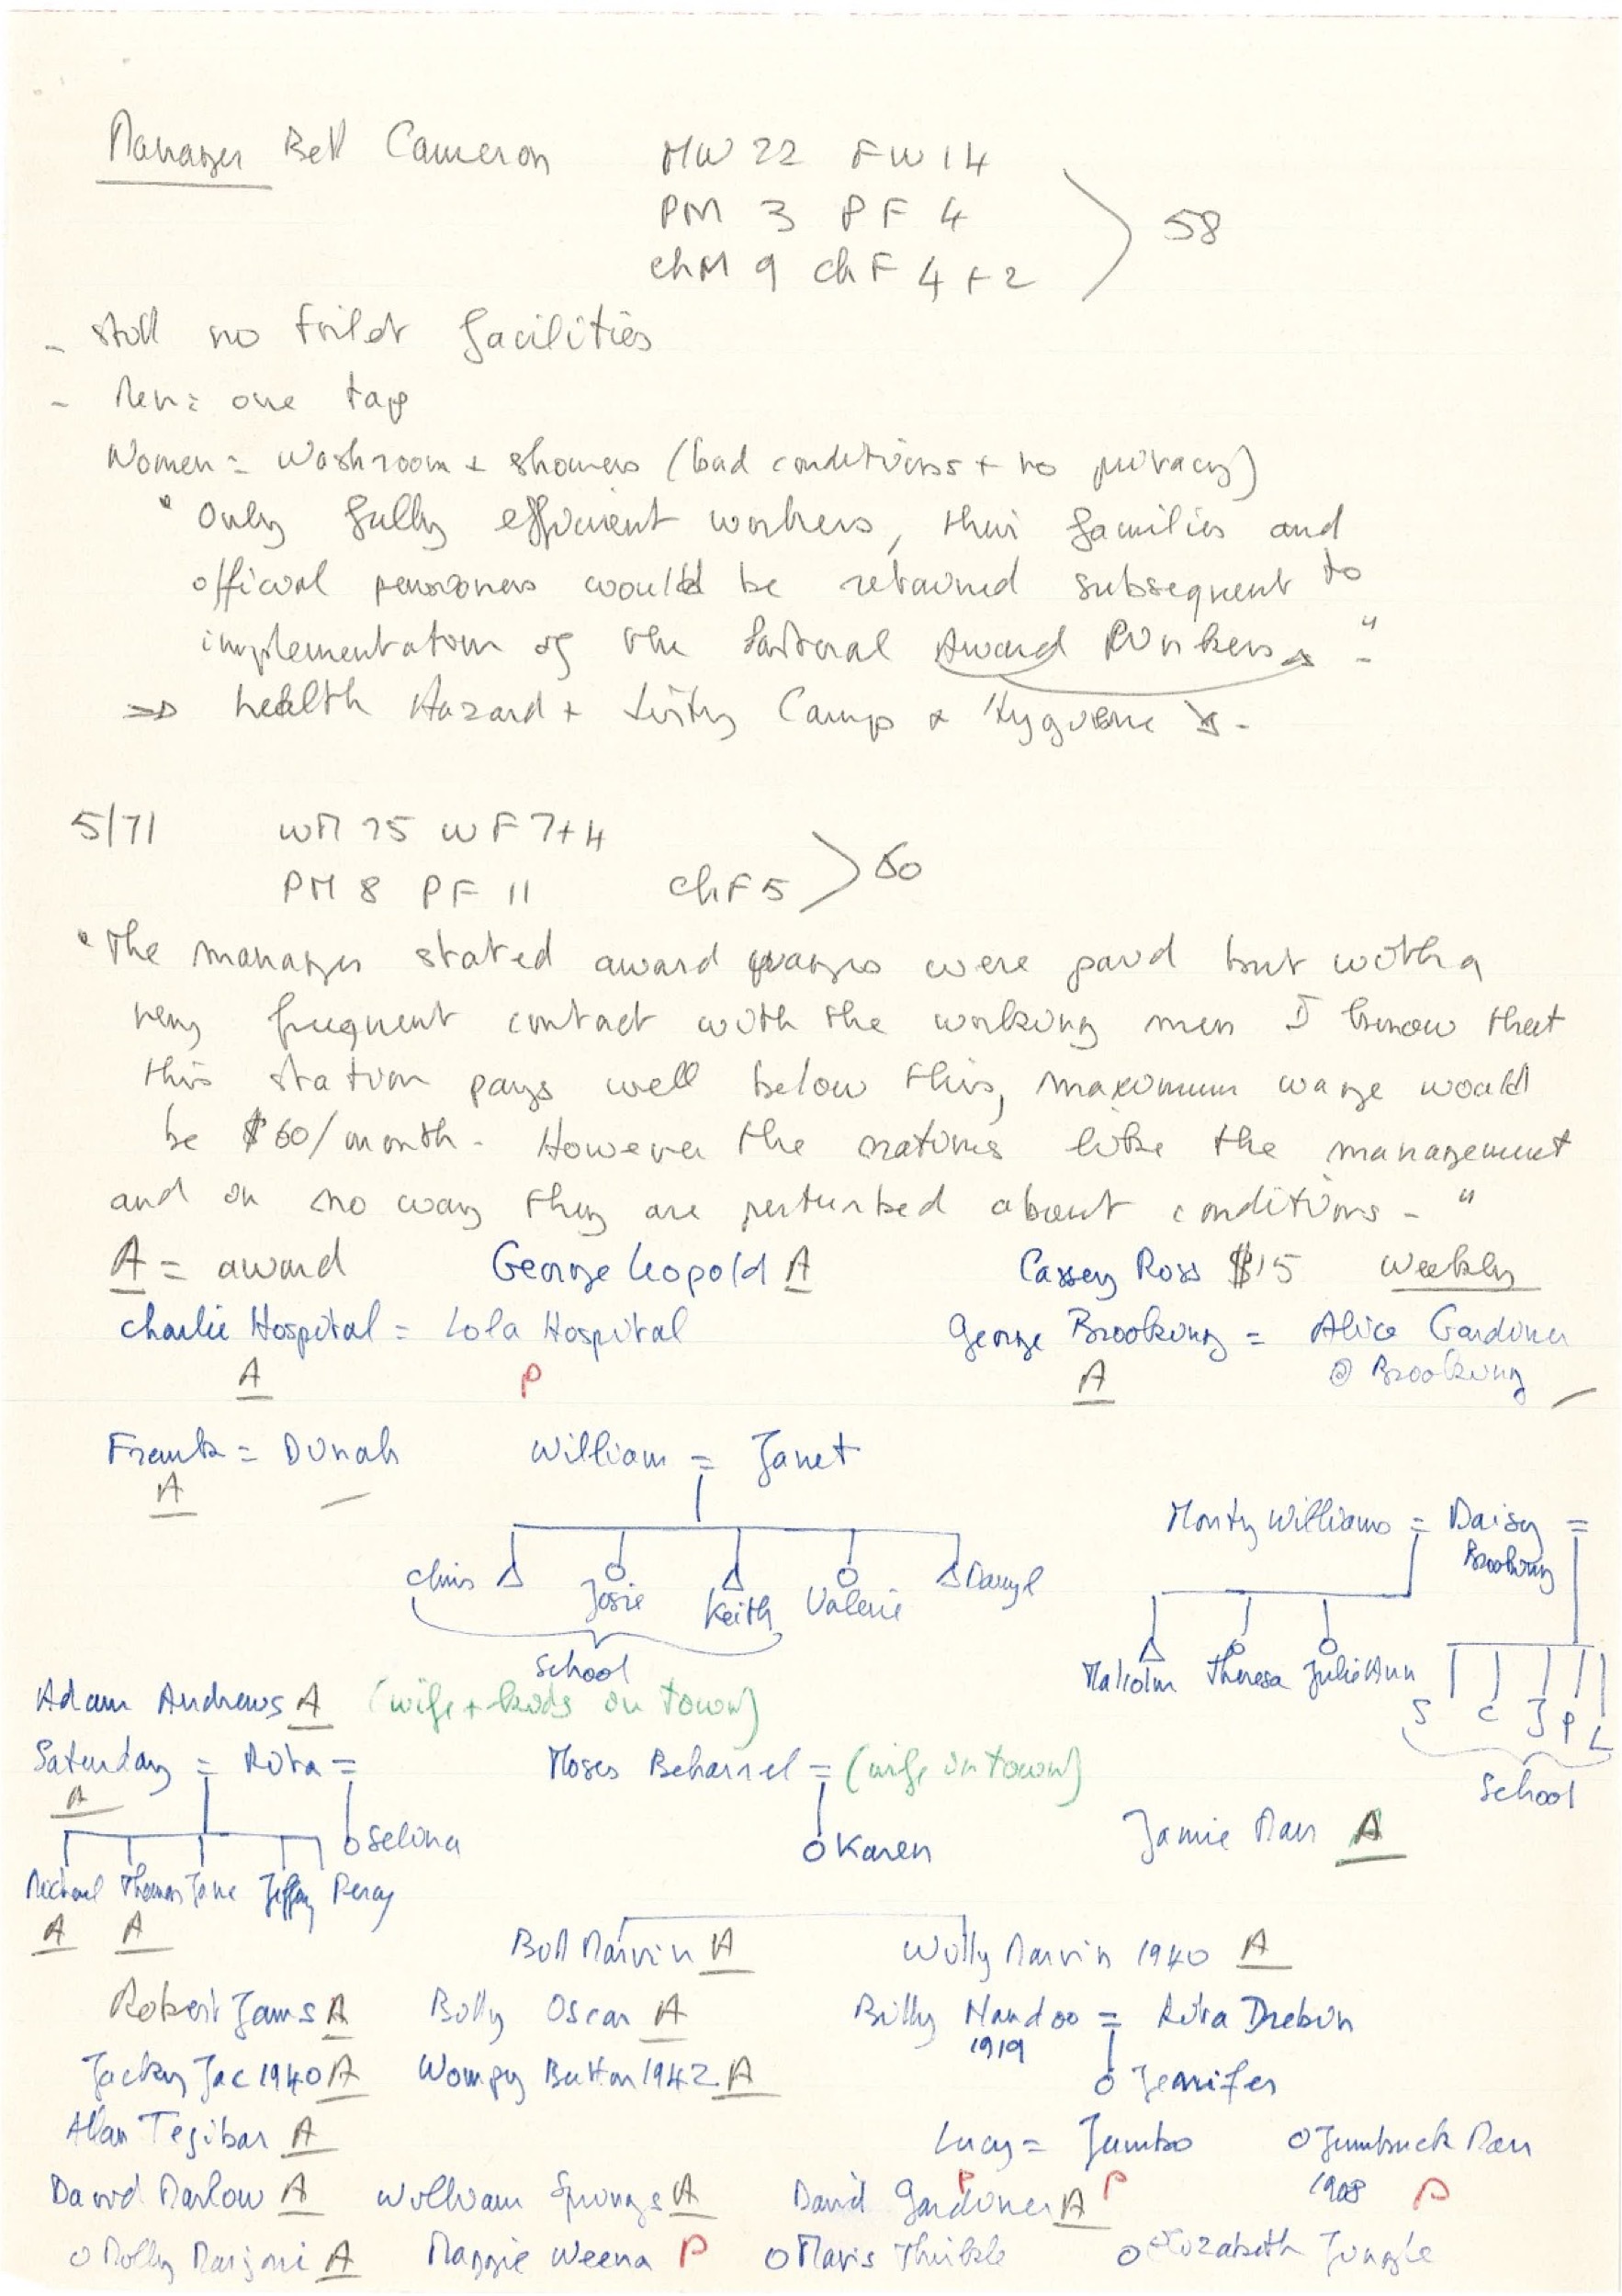 Manager Bell Cameron MW 22 FW 14
PM 3 PF 4
chM 9 chF 4 + 2 58
- still no toilet facilities
- Men = one tap
Women = washroom + showers (bad conditions + no privacy)
"Only fully efficient workers, their families and
official pensioners would be retained subsequent to
implementation of the Pastoral Award
⇒ health Hazard + dirty Camp + Hygiene ↘.
5/71 WM 25 WF 7+4
PM 8 PF 11 chF 5 60
"The manager stated award wages were paid but with a
very frequent contact with the working men I know that
this station pays well below this, maximum wage would
be $60/month. However the natives like the management
and in no way they are perturbed about conditions. "
A = award George Leopold A Cassey Ross $15 Weekly
Charlie Hospital = Lola Hospital George Brooking = Alice Gardiner
A P A @ Brooking –
Frank = Dinah William = Janet
A –
Monty Williams = Daisy =
Brooking
Chris Josie Keith Valerie Darryl
School
Malcolm Theresa Julie Ann S C J P L
School
Adam Andrews A (wife + kids in town)
Saturday = Rita = Moses Beharrel = (wife in town)
A
Selina Karen Jamie Man A
Michael Thomas Jane Jeffrey Percy
A A
Bill Marvin A Willy Marvin 1940 A
Robert James A Billy Oscar A Billy Nandoo = Rita Drebin
1919
Jacky Jac 1940 A Wompy Button 1942 A Jennifer
Allan Tegibar A
Lucy = Jumbo Jumbuck Man
P P 1908 P
David Marlow A William Springs A David Gardiner A
Molly Marjoni A Maggie Weena P Mavis Thimble Elizabeth Jungle